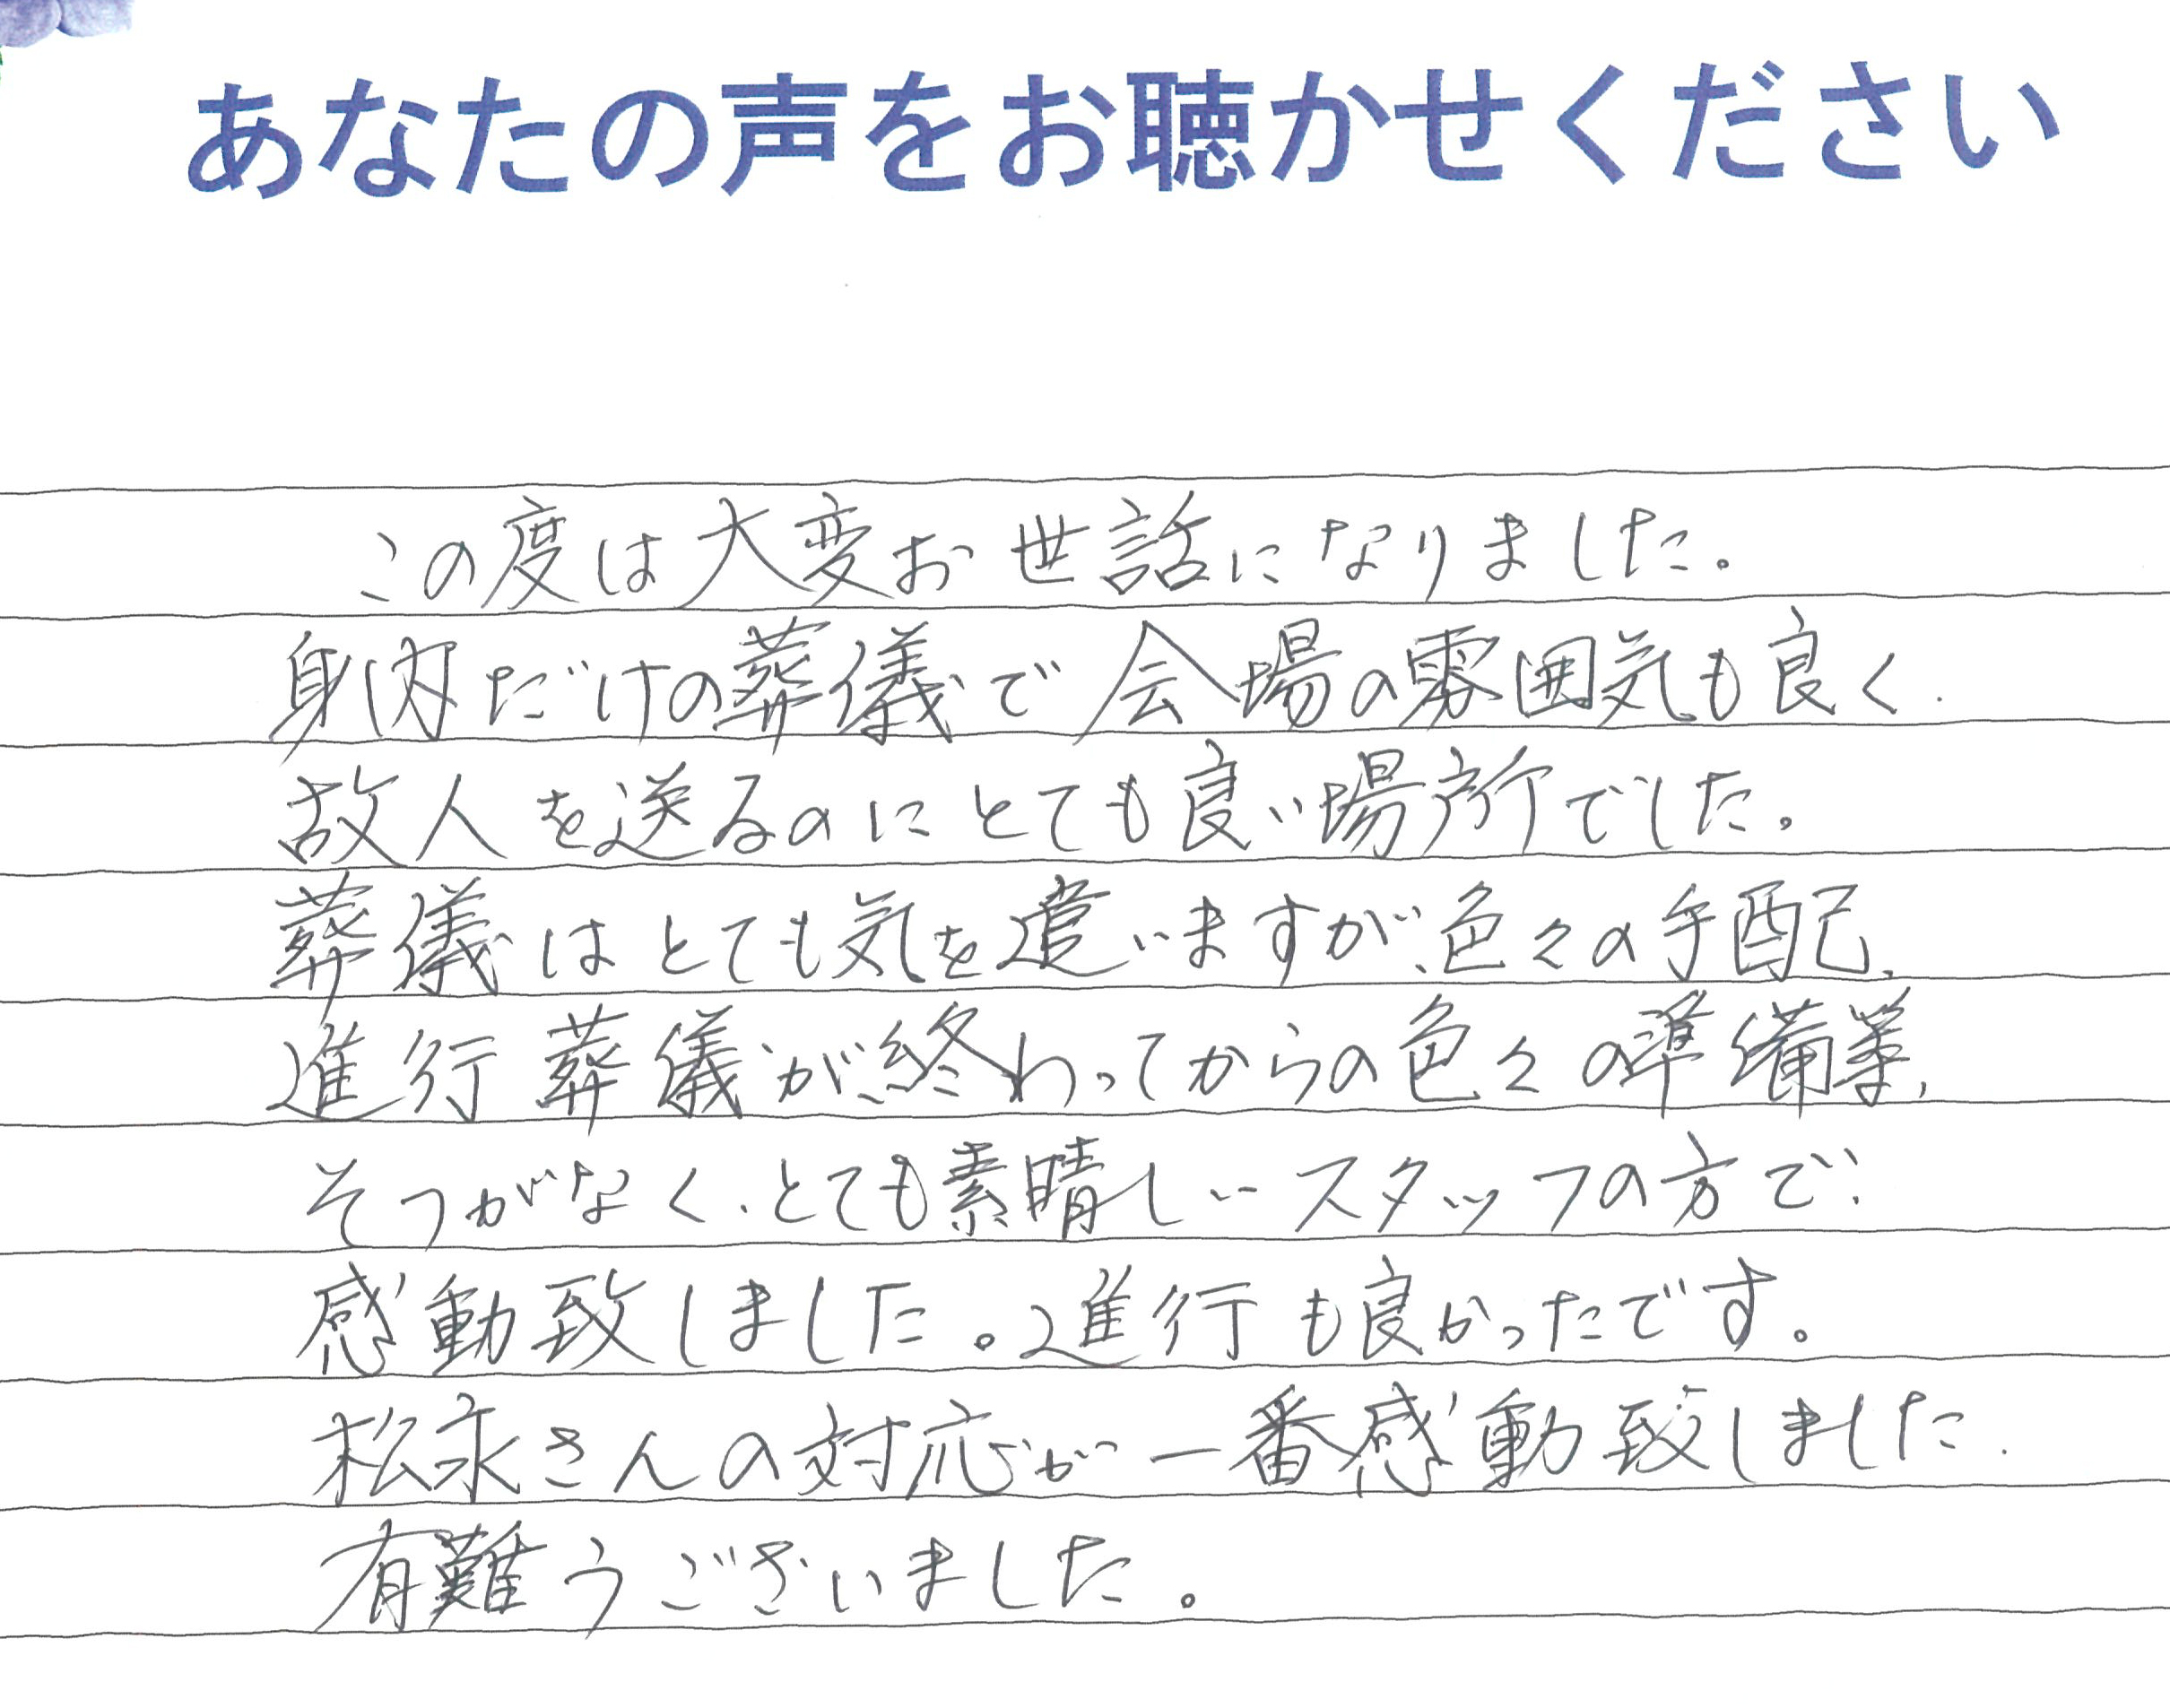 あなたの声をお聴かせください
この度は大変お世話になりました。
身内だけの葬儀で会場の雰囲気も良く、
故人を送るのにとても良い場所でした。
葬儀はとても気を遣いますが、色々の手配、
進行葬儀が終わってからの色々の準備等、
そつがなく、とても素晴しいスタッフの方で、
感動致しました。進行も良かったです。
松永さんの対応が一番感動致しました。
有難うございました。